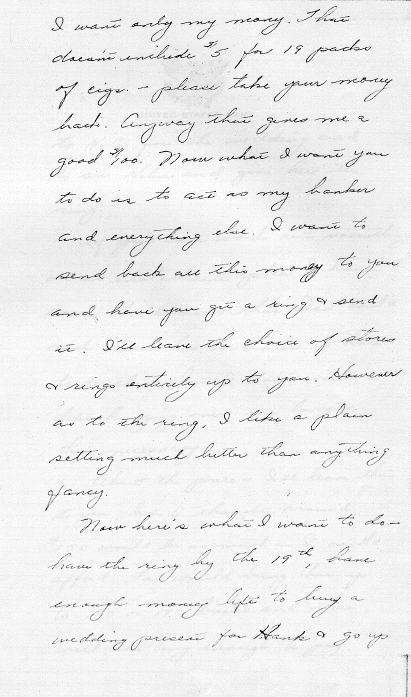 I want only my money. That
doesn't include $5 for 19 packs
of cigs. - please take your money
back. Anyway that gives me a
good $100. Now what I want you
to do is to act as my banker
and everything else. I want to
send back all this money to you
and have you get a ring & send
it. I'll leave the choice of stores
& rings entirely up to you. However
as to the ring, I like a plain
setting much better than anything
fancy.
Now here's what I want to do -
have the ring by the 19th, have
enough money left to buy a
wedding present for Hank & go up